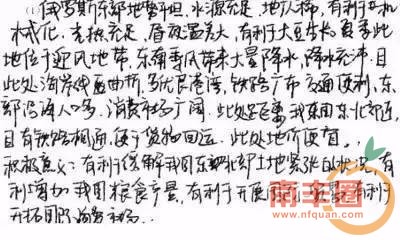 (1)俄罗斯东部地势平坦,水源充足,地广人稀,有利于农机
械化。光热充足,昼夜温差大,有利于大豆生长。夏季此
地位于迎风地带,东南季风带来大量降水,降水充沛。且
此处海岸线曲折,多优良港湾,铁路广布,交通便利,东
部沿海人口多,消费市场广阔。此处距离我东国东北部近,
且有铁路相通,便于货物回运。此处地价便宜。
积极意义:有利于缓解我国东北部土地紧张的状况,有
利增加我国粮食产量,有利于开展 有利于
开拓国际海外市场.
南丰圈
www.nfquan.com